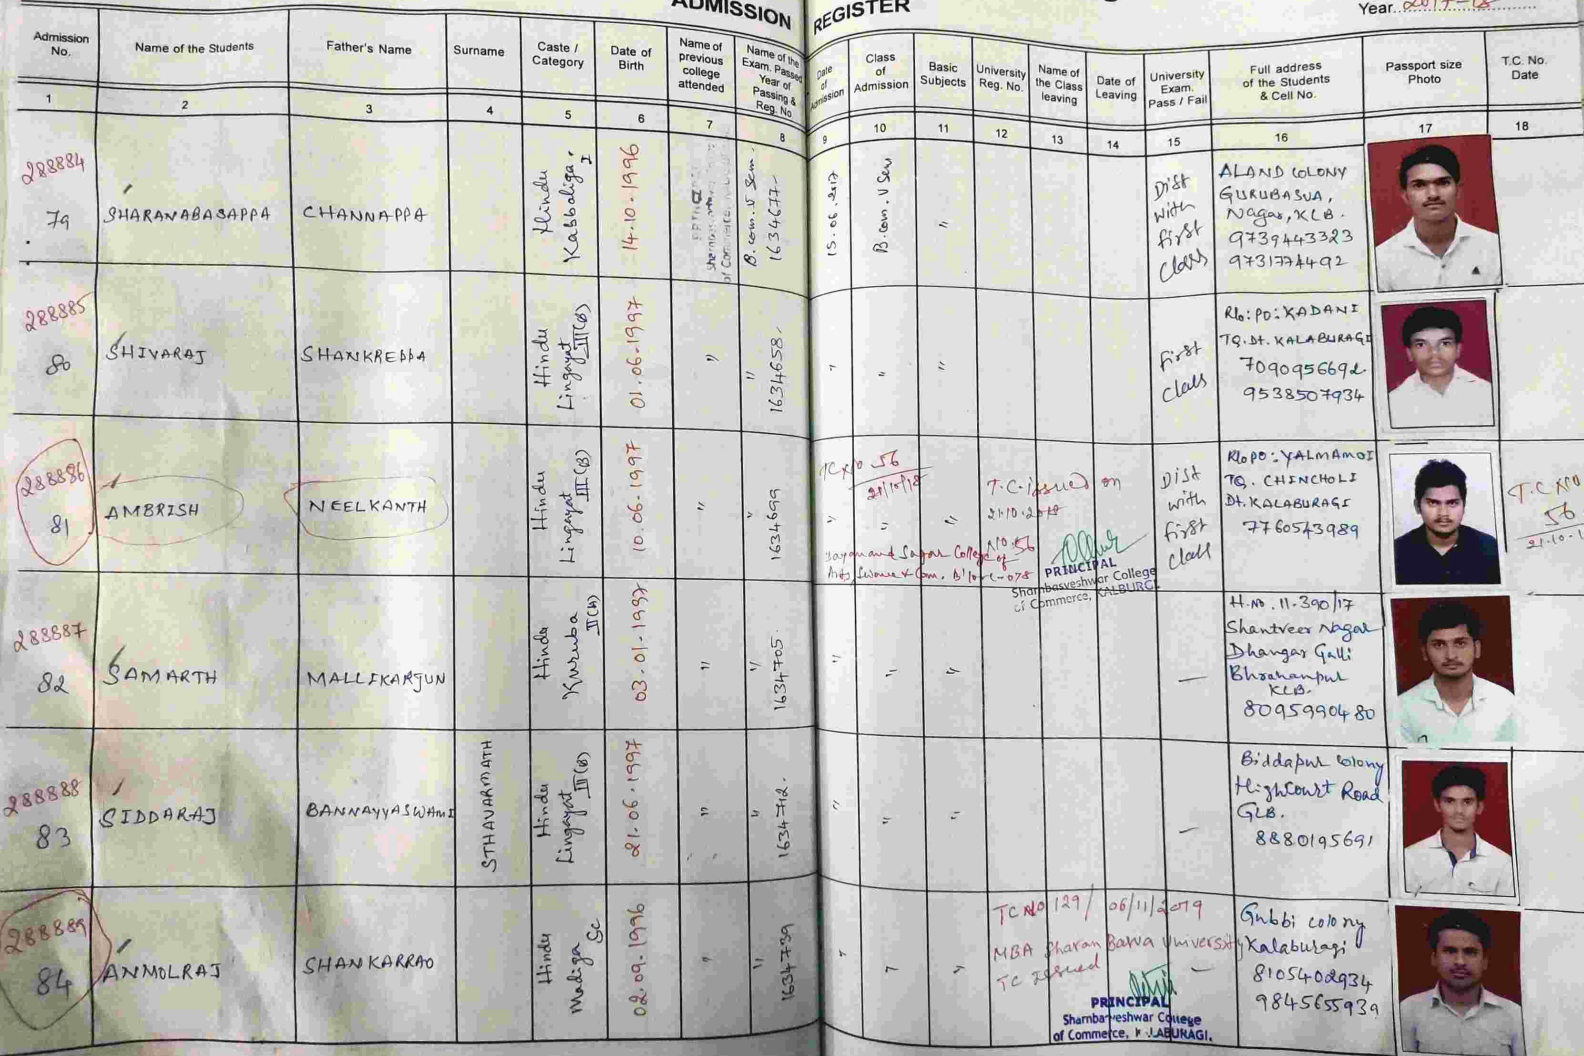 ADMISSION REGISTER
Year 2017-18
Admission No.
Name of the Students
Father's Name
Surname
Caste / Category
Date of Birth
Name of previous college attended
Name of the Exam. Passed Year of Passing & Reg. No
Date of Admission
Class of Admission
Basic Subjects
University Reg. No.
Name of the Class leaving
Date of Leaving
University Exam. Pass / Fail
Full address of the Students & Cell No.
Passport size Photo
T.C. No. Date
1 2 3 4 5 6 7 8 9 10 11 12 13 14 15 16 17 18
288884
79
SHARANABASAPPA
CHANNAPPA
Hindu
Kabbaliga. I
14.10.1996
of Commerce
B.com. V Sem.
1634677
15.06.2017
B.com. V Sem
"
Dist
with
first
class
ALAND COLONY
GURUBASVA,
Nagar, KLB.
9739443323
9731774492
288885
80
SHIVARAJ
SHANKREPPA
Hindu
Lingayat III(B)
01.06.1997
"
"
1634658
"
"
"
First
class
R/o: PO: KADANI
TQ. Dt. KALABURAGI
7090956692
9538507934
288886
81
AMBRISH
NEELKANTH
Hindu
Lingayat III(B)
10.06.1997
"
"
1634699
TC NO 56
21/10/18
"
"
"
T.C. issued on
21.10.2018
NO. 56
Dayanand Sagar College of
Arts, Science & Com. B'lore-078
PRINCIPAL
Sharnbasveshwar College
of Commerce, KALBURGI.
Dist
with
first
class
R/o PO: YALMAMDI
TQ. CHINCHOLI
Dt. KALABURAGI
7760543989
T.C NO
56
21.10.1
288887
82
SAMARTH
MALLIKARJUN
Hindu
Kuruba II(A)
03.01.1997
"
"
1634705
"
"
"
—
H.NO. 11-390/17
Shantveer Nagar
Dhangar Galli
Bhrahanpur
KLB.
8095990480
288888
83
SIDDARAJ
BANNAYYASWAMI
STHAVARMATH
Hindu
Lingayat III(B)
21.06.1997
"
"
1634712
"
"
"
—
Biddapur Colony
High Court Road
GLB.
8880195691
288889
84
ANMOLRAJ
SHANKARRAO
Hindu
Madiga SC
02.09.1996
"
"
1634739
"
"
"
TC NO 129/ 06/11/2019
MBA Sharan Baswa University
TC Issued
PRINCIPAL
Sharnbasveshwar College
of Commerce, KALABURAGI.
—
Gubbi colony
Kalaburagi
8105402934
9845655939